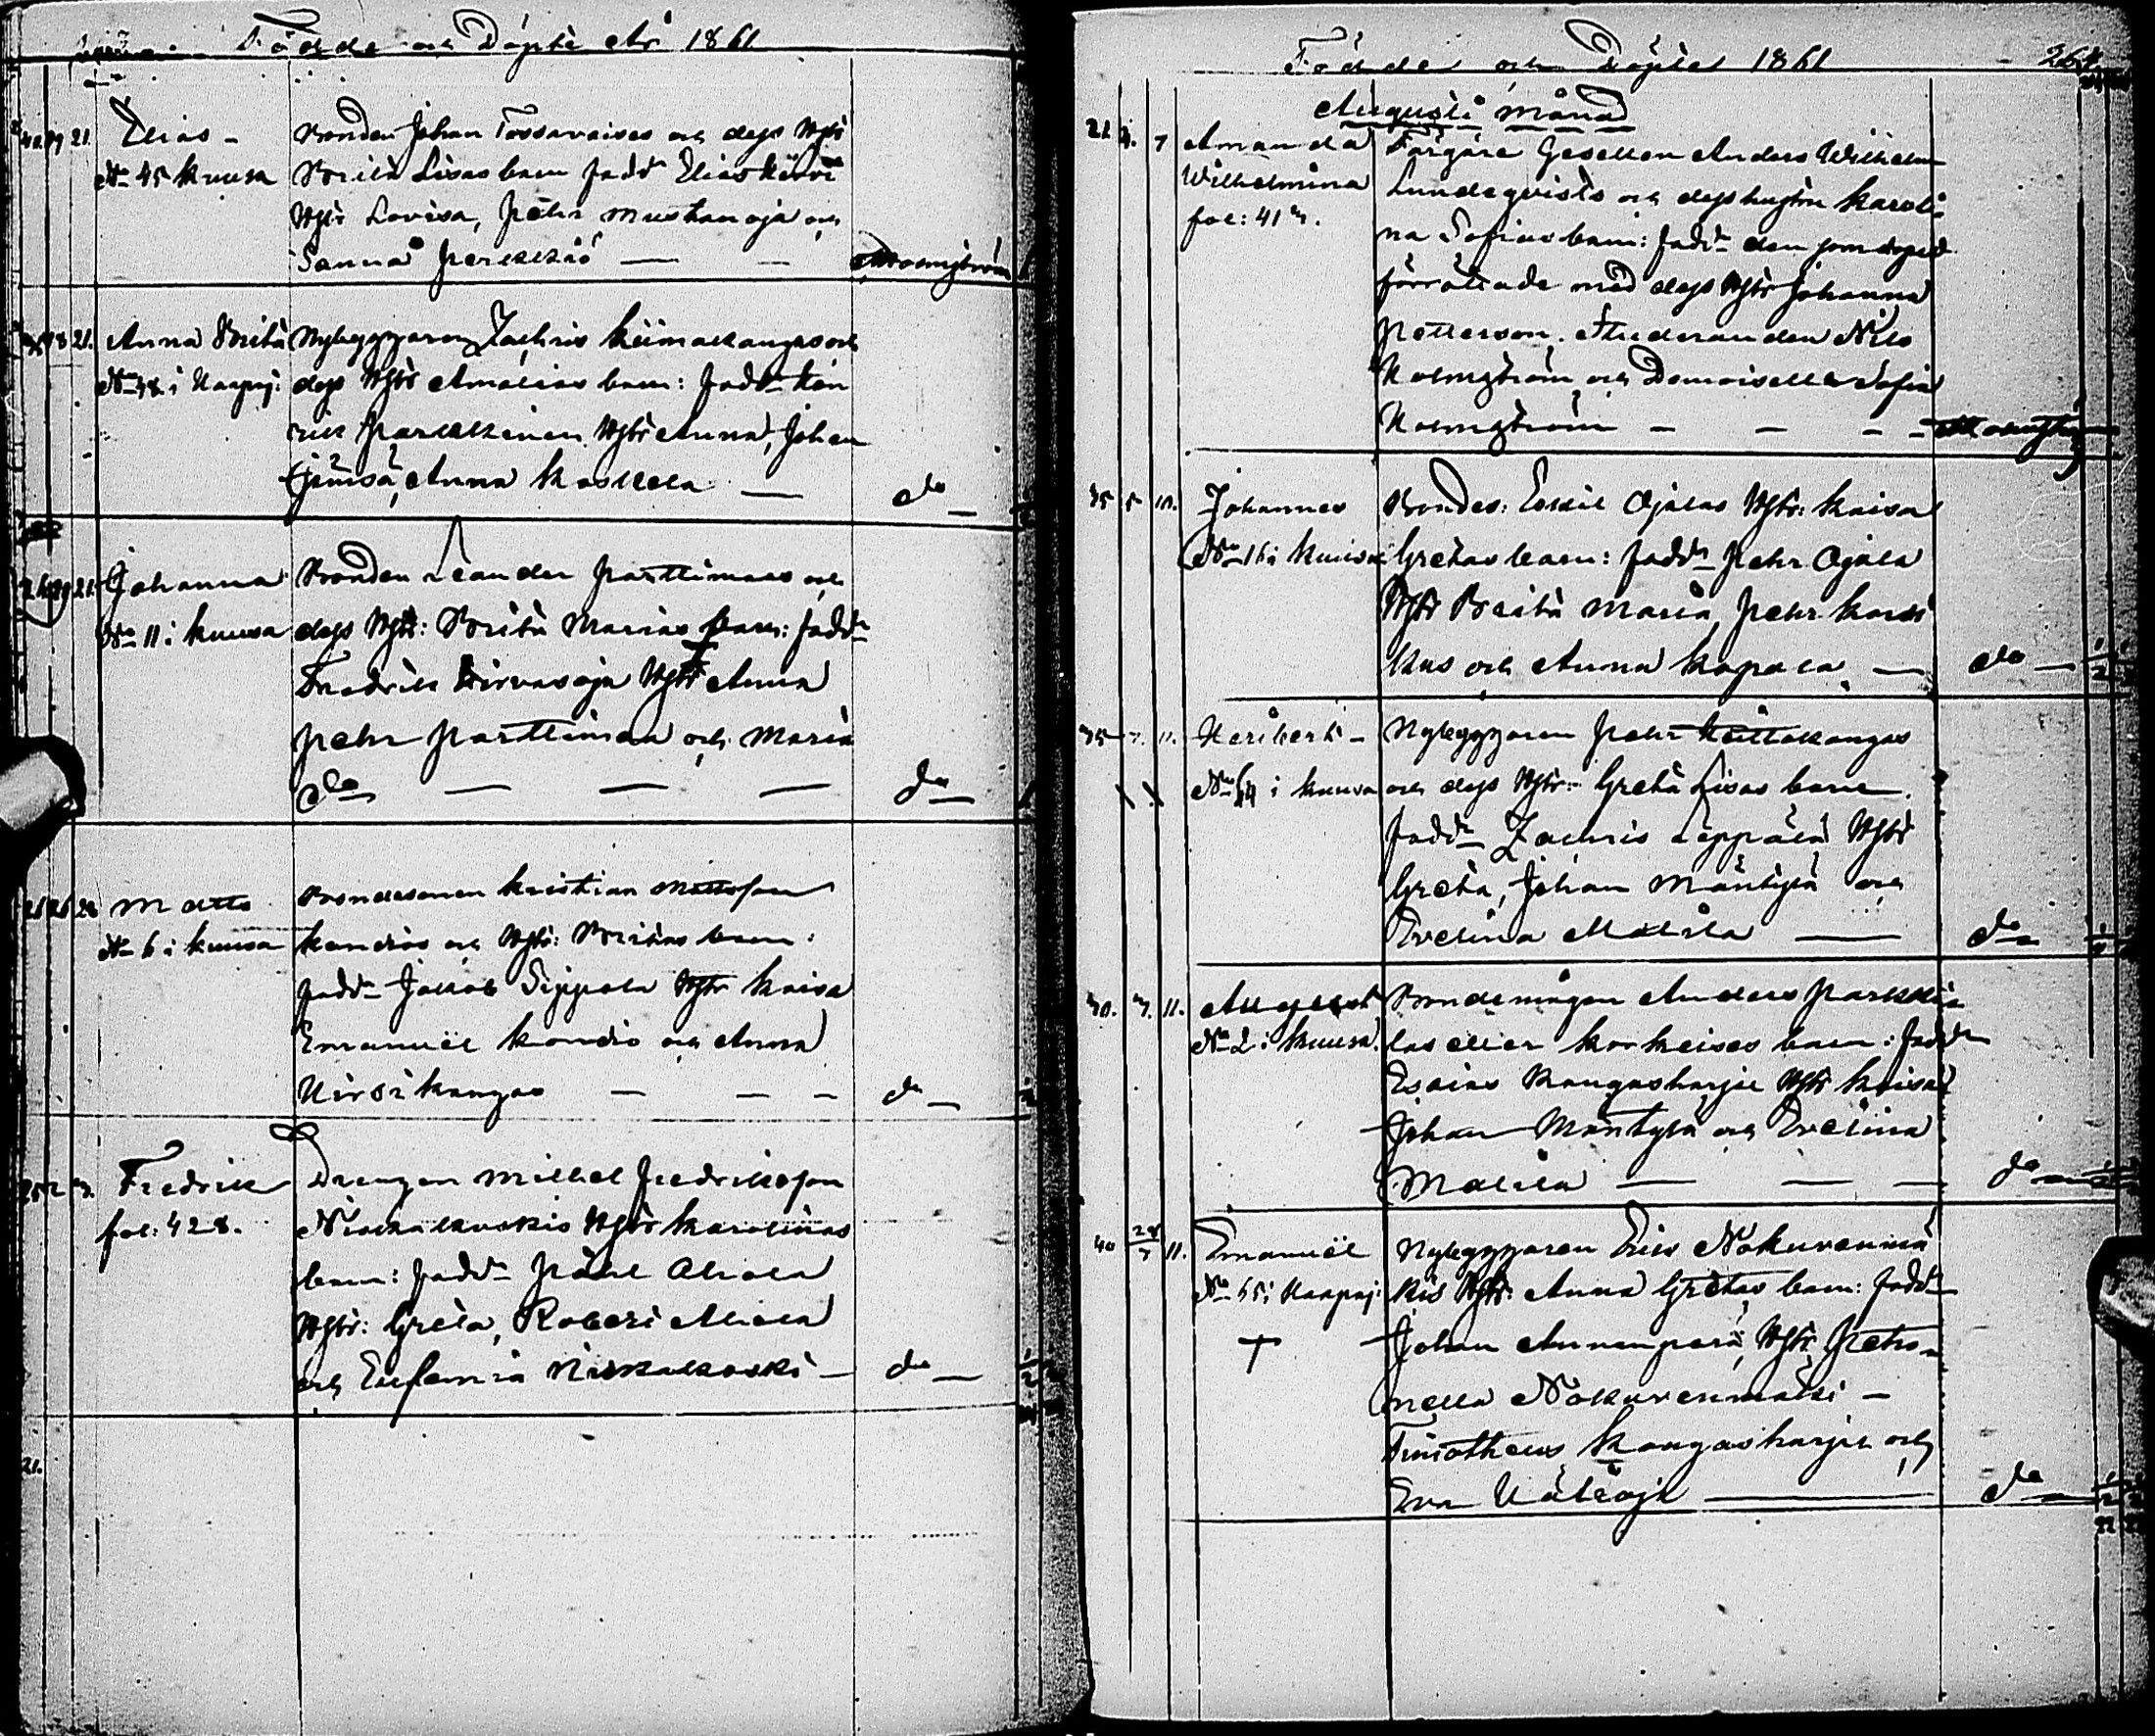 Födde och Döpte År 1861
40. 19 21. Elias -
No 45 Kuusa
Bonden Johan Tossavaises och dess Hstr
Brita Lisas barn Fadd. Elias Kärri
Hstr Lovisa, Pehr Mustanoja och
Sanna Perkkiö — — Holmström
18 21. Anna Brita
No 48 i Haapaj:
Nybyggaren Zachris Kiimakangas och
dess Hstr Amalias barn: Fadd. Hen
rik Parkkinen Hstr Anna, Johan
Jämsä, Anna Koskela — do —
19 21. Johanna
No 11 i Kuusa
Bonden Leander Parttimaas och
dess Hstr: Brita Marias barn: Fadd.
Fredrik Hirvasoja Hstr Anna
Pehr Parttimaa och Maria
do — — — do —
Matts
No 6 i Kuusa
Bondesonen Kristian Mattsson
Kandios och Hstr: Britas barn:
Fadd. Jakob Sippola Hstr Kaisa
Emanuel Kondio och Anna
Hirsikangas — — — do —
Fredrik
fol: 428.
Drengen Mikkel Fredriksson
Niskakoskis Hstr Karolinas
barn: Fadd. Påhl Ahola
Hstr: Greta, Robert Ahola
och Eufemia Niskakoski — do —
21.
Födde och Döpte 1861 264.
Augusti Månad
21 4. 7 Amanda
Wilhelmina
fol: 41
Färgare Gesellen Anders Wilhelm
Lundeqvists och dess hustru Karoli-
na Sofias barn: Fadd. den som dopet
förrättade med dess Hstr Johanna
Petterson, Studeranden Nils
Holmström och Demoiselle Sofia
Holmström — — — Holmström
35 5 10. Johannes
No 16 i Kuusa
Bondes: Eskil Ojalas Hstr: Kaisa
Gretas barn: Fadd. Pehr Ojala
Hstr Brita Maria, Pehr Kark
kus och Anna Kopala — do —
35 7. 11. Heribert -
No 64 i Kuusa
Nybyggaren Pehr Kaittakangas
och dess Hstr: Greta Lisas barn
Fadd. Zachris Leppälä Hstr
Greta, Johan Mäntylä och
Evelina Matila — do
30. 7. 11. August
No 2 i Kuusa.
Bondemågen Anders Parkki-
las eller Korkeises barn: Fadd.
Esaias Kangasharju Hstr Kaisa
Johan Mäntylä och Evelina
Matila — — — do
40 28/7 11. Emanuel
No 65 i Haapaj:
†
Nybyggaren Eric Nokurenmä
kis Hstr: Anna Gretas barn: Fadd.
Johan Annunperä, Hstr, Petro-
nella Nokurenmäki —
Timotheus Kangasharju och
Eva Hätioja — do